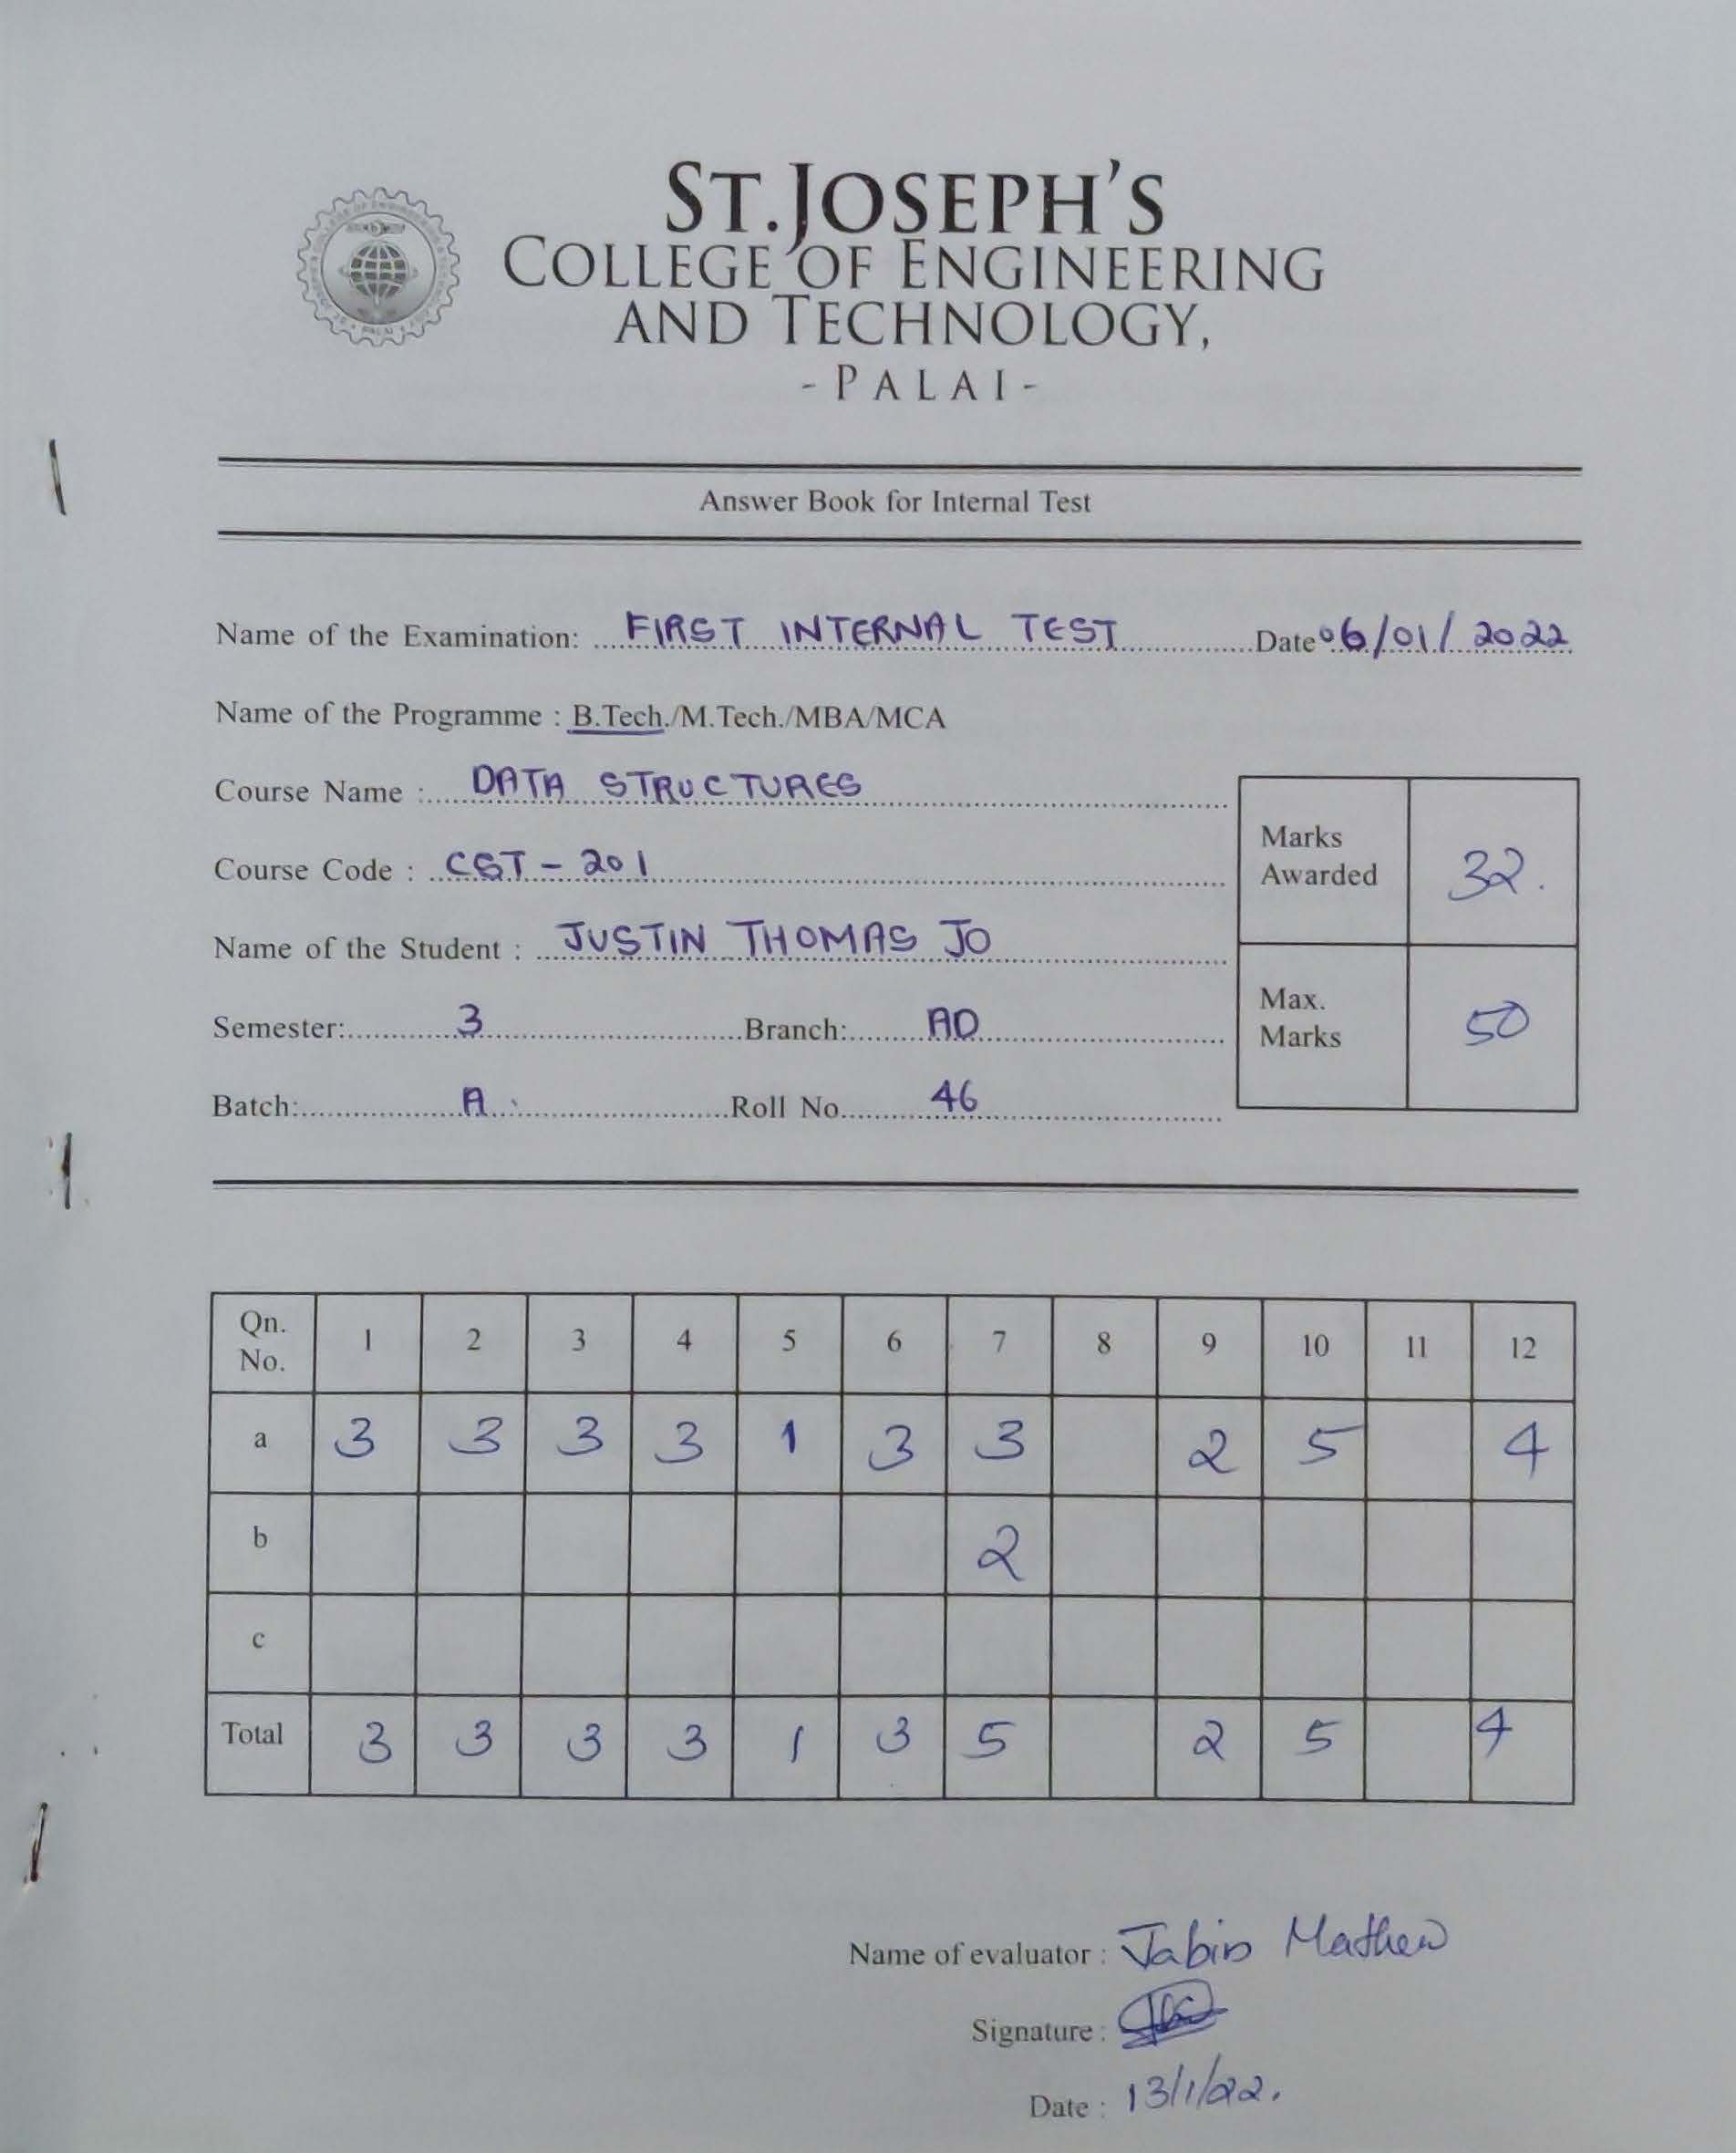 ST.JOSEPH'S
COLLEGE OF ENGINEERING
AND TECHNOLOGY,
-PALAI-
Answer Book for Internal Test
Name of the Examination: FIRST INTERNAL TEST Date 06/01/2022
Name of the Programme : B.Tech./M.Tech./MBA/MCA
Course Name : DATA STRUCTURES
Course Code : CST-201
Name of the Student : JUSTIN THOMAS JO
Semester: 3 Branch: AD
Batch: A Roll No. 46
Marks Awarded 32.
Max. Marks 50
Qn. No. 1 2 3 4 5 6 7 8 9 10 11 12
a 3 3 3 3 1 3 3 2 5 4
b 2
c
Total 3 3 3 3 1 3 5 2 5 4
Name of evaluator : Jabin Mathew
Signature :
Date : 13/1/22.